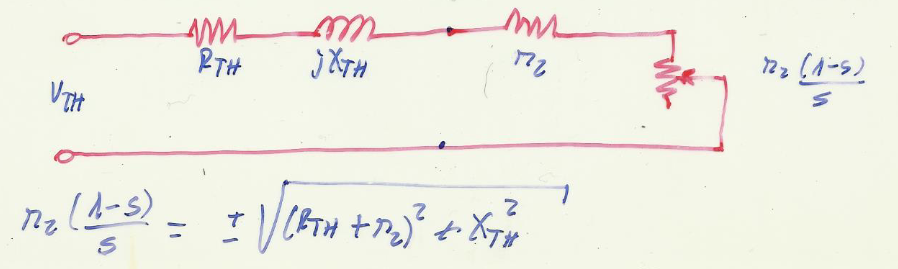 R_TH jX_TH r_2
V_TH
r_2 (1-s)/s
r_2 (1-s)/s = ± √((R_TH + r_2)^2 + X_TH^2)